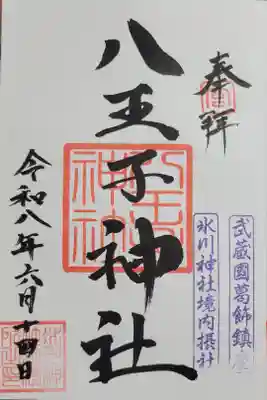 奉拝
武蔵國葛飾鎮座
氷川神社境内摂社
八王子神社
令和八年六月十四日